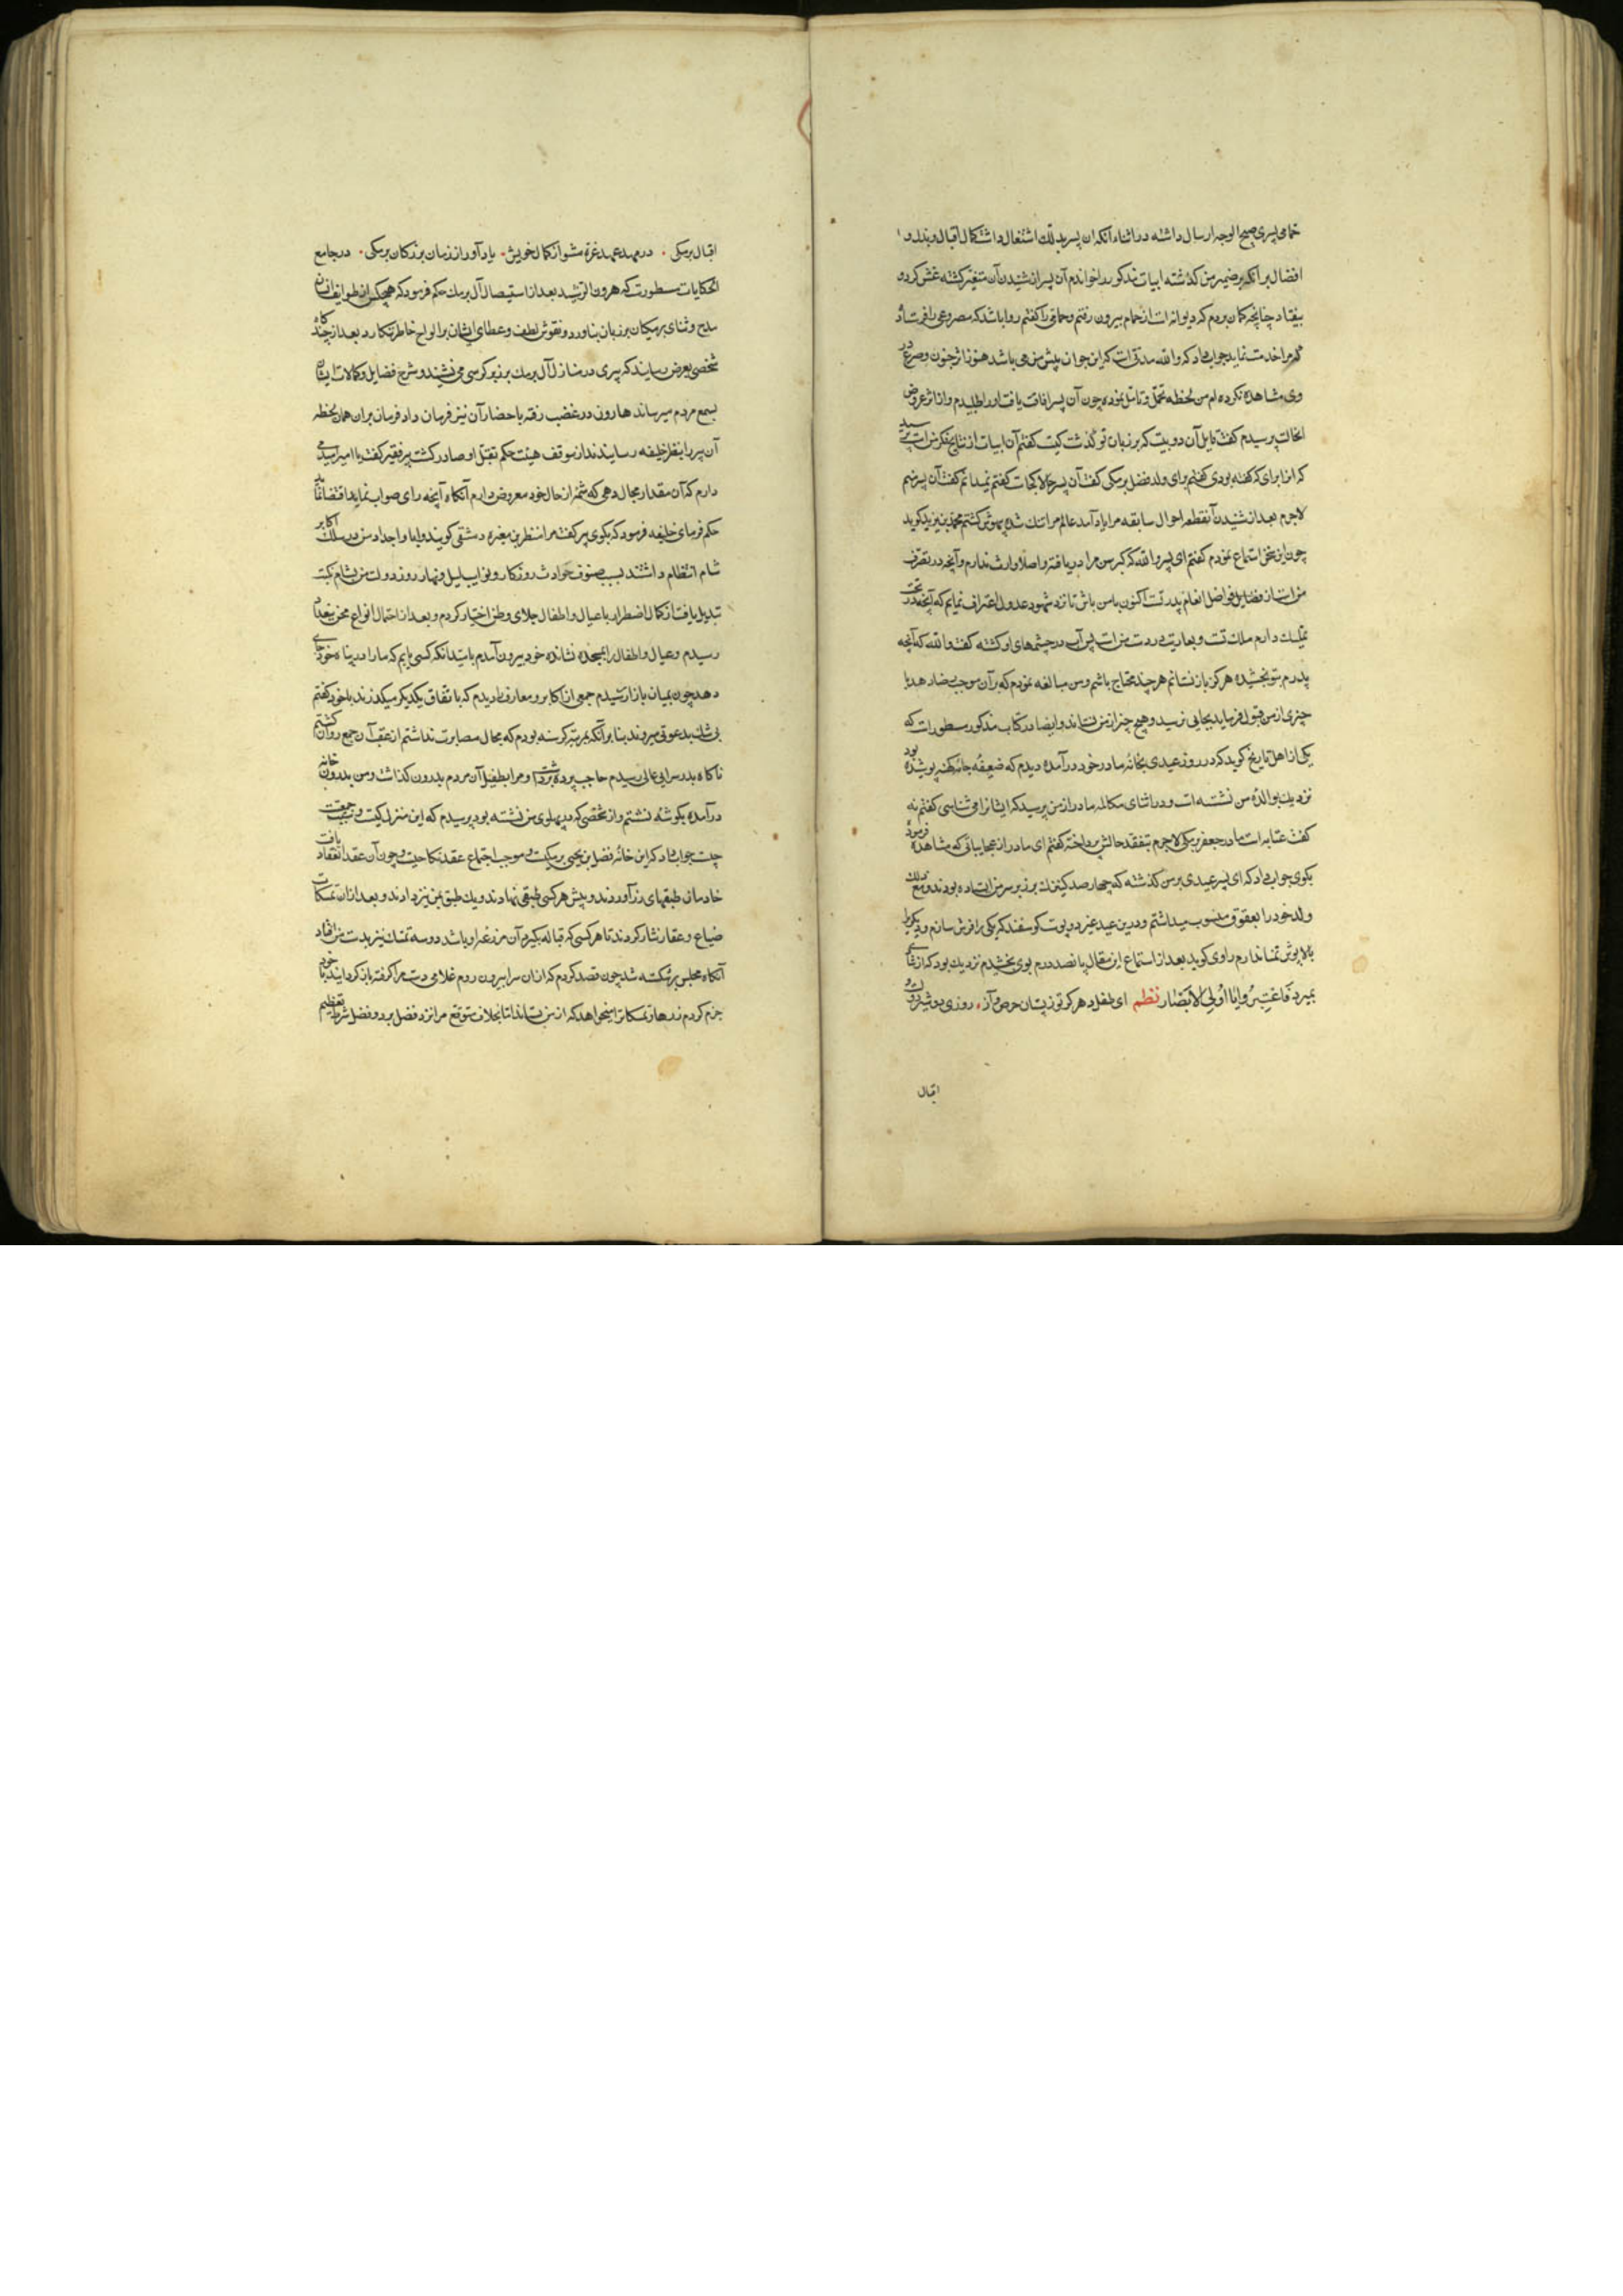 حمامی پسری صبیح الوجه ارسال داشته در اثناء آنکه آن پسر بدلک اشتغال داشت کمال اقبال و بذل و
افضال برامکه بر ضمیر من گذشته ابیات مذکور را خواندم آن پسر از شنیدن آن متغیر گشته غش کرد و
بیفتاد چنانچه گمان بردم که دیوانه است از حمام بیرون رفتم و حمامی را گفتم روا باشد که مصروعی را فرستاد
مرا خدمت نماید جواب داد که والله مدتی است که این جوان پیش من می باشد هنوز اثر جنون و صرع در
وی مشاهده نکرده ام من لحظه تحمل و تامل نموده چون آن پسر افاقت یافت او را طلبیدم و از اثر عروض
الحالت پرسیدم گفت قایل آن دو بیت که بر زبان تو گذشت کیست گفتم آن ابیات از نتایج فکر من است پرسید
که از برای که گفته بودی گفتم برای ولد فضل برمکی گفت آن پسر حالا کجاست گفتم نمیدانم گفت آن پسر منم
لاجرم بعد از شنیدن آن قطعه احوال سابقه مرا یاد آمد عالم بر من تنک شده بیهوش گشتم محمد بن یزید کوید
چون این سخن استماع نمودم گفتم ای پسر والله که کبر سن مرا دریافته و اصلا وارث ندارم و آنچه در تصرف
من است از فضایل فواضل انعام پدر تست اکنون با من باش تا نزد شهود عدول اعتراف نمایم که آنچه در تحت
تملک دارم ملک تست و بعاریت در دست من است پس آب در چشمهای او گشته گفت والله که آنچه
پدرم بتو بخشیده هرگز باز نستانم هر چند محتاج باشم و من مبالغه نمودم که
چیزی از من قبول فرماید بجایی نرسید و هیچ چیز از من نستاند و ایضا در کتاب مذکور مسطور است که
یکی از اهل تاریخ کوید که در روز عیدی بخانه مادر خود درآمده دیدم که ضعیفه جامه کهنه پوشیده بود
نزدیک بوالده من نشسته است و در اثنای مکالمه مادر از من پرسید که ایشانرا می شناسی گفتم نه
گفت عتابه است مادر جعفر برمکی لاجرم بتفقد حالش پرداخته گفتم ای مادر از عجایباتی که مشاهده فرموده
بگوی جواب داد که ای پسر عیدی بر من گذشته که چهارصد کنیزک بر زبر سر من ایستاده بودند و مع ذلک
ولد خود را بعقوق منسوب میداشتم و درین عید غیر دو پوست گوسفند که یکی را فرش سازم و دیگری را
بالاپوش تمنا ندارم راوی کوید بعد از استماع این مقال پانصد درم بوی بخشیدم نزدیک بود که از شادی
بمیرد فَاعْتَبِرُوا یَا اُولِی الْاَبْصَار نظم ای طفل دهر گر تو ز پستان حرص و آز روزی دو شیر دولت و
اقبال
اقبال برمکی در مهد عهد غره مشو از کمال خویش یاد آور از زمان بزرکان برمکی در جامع
الحکایات مسطورست که هرون الرشید بعد از استیصال آل برمک حکم فرمود که هیچکس از طوایف انسان
مدح و ثنای برمکیان بر زبان نیاورد و نقوش لطف و عطای ایشان بر الواح خاطر ننگارد بعد از چندگاه
شخصی بعرض رسانید که پیری در منازل آل برمک بر زبر کرسی می نشیند و شرح فضایل و کمالات ایشان
بسمع مردم میرساند هارون در غضب رفته باحضار آن نیز فرمان داد فرمان بران همان لحظه
آن پیر را بنظر خلیفه رسانیدند از موقف هیبت حکم بقتل او صادر گشت پیر فقیر گفت یا امیر امید می
دارم که آن مقدار مجال دهی که شمه از حال خود معروض دارم آنگاه آنچه رای صواب نماید
حکم فرمای خلیفه فرمود که بگوی پیر گفت مرا منظر بن مغیره دمشقی گویند و آبا و اجداد من در سلک اکابر
شام انتظام داشتند بسبب صنوف حوادث روزکار و نوایب لیل و نهار روز دولت من بشام نکبت
تبدیل یافت از کمال اضطرار با عیال و اطفال جلای وطن اختیار کردم و بعد از احتمال انواع محن ببغداد
رسیدم و عیال و اطفال را بمسجدی نشانده خود بیرون آمدم بامید آنکه کسی یابم که ما را در پناه خود جای
دهد چون بمیان بازار رسیدم جمعی از اکابر و معارف را دیدم که باتفاق یکدیکر میکذرند با خود گفتم
بی شک بدعوتی میروند بنا بر آنکه بمرتبه گرسنه بودم که مجال مصابرت نداشتم از عقب آن جمع روان گشتم
ناکاه بدر سرایی عالی رسیدم حاجب پرده برداشت و مرا بطفیل آن مردم بدرون گذاشت و من بدرون خانه
درآمده بگوشه نشستم و از شخصی که در پهلوی من نشسته بود پرسیدم که این منزل کیست و سبب جمعیت
چیست جواب داد که این خانه فضل بن یحیی برمکیست و موجب اجتماع عقد نکاحیست و چون آن عقد انعقاد یافت
خادمان طبقهای زر آوردند و پیش هر کسی طبقی نهادند و یک طبق بمن نیز دادند و بعد از آن تمسکات
ضیاع و عقار نثار کردند تا هر کسی که قباله بگیرد آن مزرعه او باشد دو سه تمسک نیز بدست من افتاد
آنگاه مجلس برشکسته شد چون قصد کردم که از آن سرا بیرون روم غلامی دست مرا گرفته باز گردانید با خود
جزم کردم زرها و تمسکات را میخواهد که از من بستاند اما بخلاف متوقع مرا نزد فضل برد و فضل شرط تعظیم